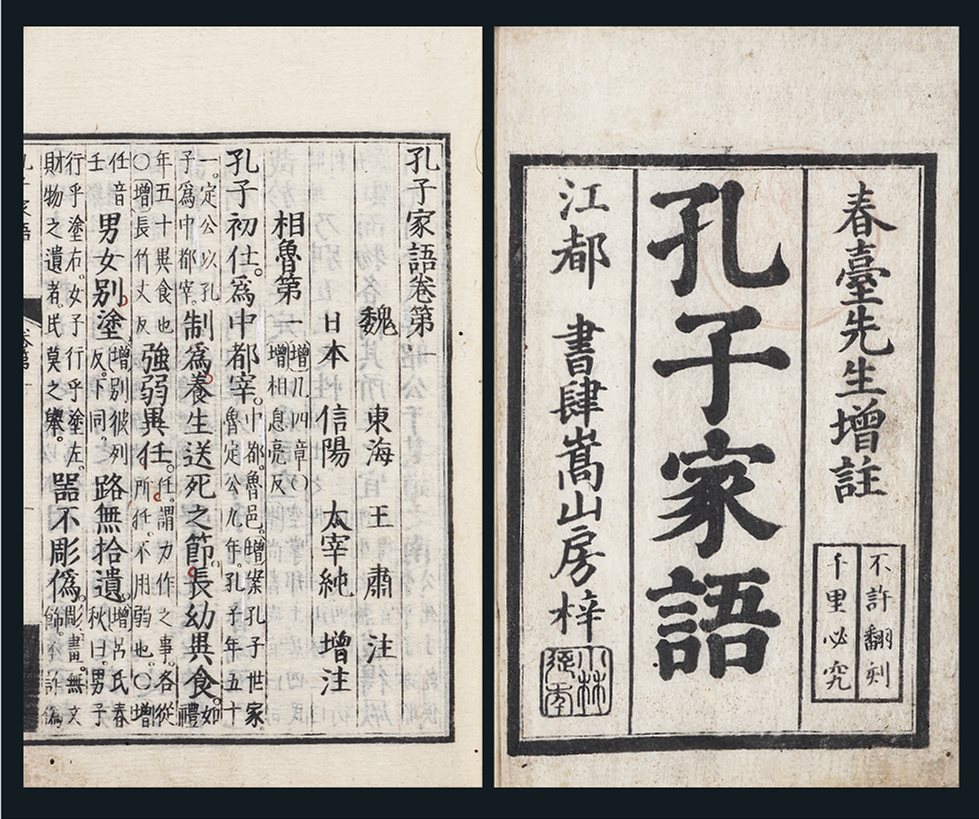 春臺先生增註
不許翻刻
千里必究
孔子家語
江都 書肆嵩山房梓
小林
孔子家語卷第一
魏 東海 王肅 注
日本 信陽 太宰純 增注
相魯第一 增凡四章○增相息亮反
孔子初仕。爲中都宰。中都。魯邑。增案孔子世家魯定公九年。孔子年五十
一。定公以孔子爲中都宰。制爲養生送死之節。長幼異食。如禮
年五十異食也○增長竹丈反強弱異任。任。謂力作之事。各從所任。不用弱也。○增
任音壬男女別塗。增別彼列反。下同。路無拾遺。增呂氏春秋曰。男子
行乎塗右。女子行乎塗左。財物之遺者。民莫之舉。器不彫僞。彫畫。無文飾。不詐僞